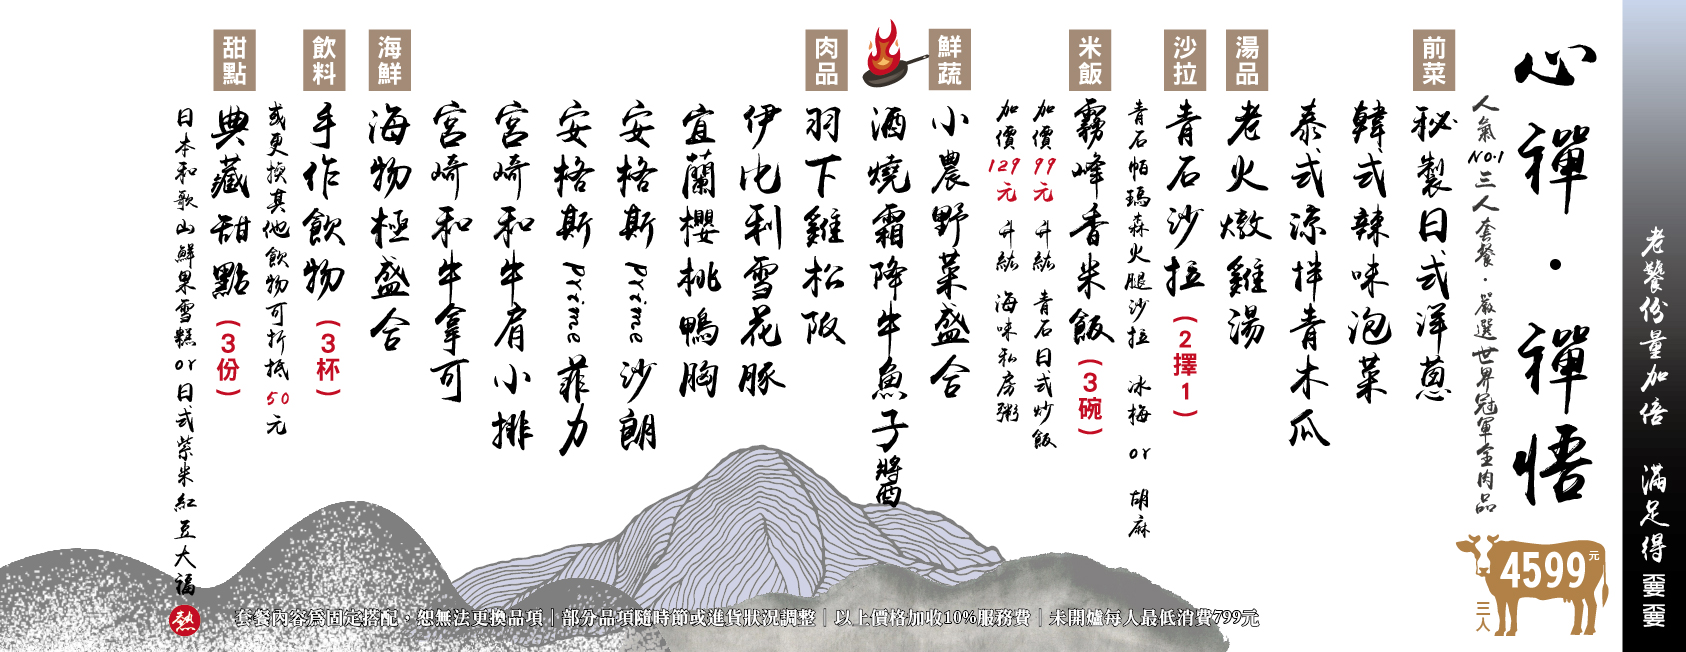 老饕份量加倍　滿足得嫑嫑
心禪・禪悟
人氣NO.1三人套餐・嚴選世界冠軍金肉品
4599元
三人
前菜
秘製日式洋蔥
韓式辣味泡菜
泰式涼拌青木瓜
湯品
老火燉雞湯
沙拉
青石沙拉(2擇1)
青石帕瑪森火腿沙拉　冰梅 or 胡麻
米飯
霧峰香米飯(3碗)
加價99元 升級 青石日式炒飯
加價129元 升級 海味私房粥
鮮蔬
小農野菜盛合
酒燒霜降牛魚子將酉
肉品
羽下雞松阪
伊比利雪花豚
宜蘭櫻桃鴨胸
安格斯Prime沙朗
安格斯Prime菲力
宮崎和牛肩小排
宮崎和牛拿可
海鮮
海物極盛合
飲料
手作飲物(3杯)
或更換其他飲物可折抵50元
甜點
典藏甜點(3份)
日本和歌山鮮果雪糕or日式紫米紅豆大福
熱
套餐內容為固定搭配，恕無法更換品項｜部分品項隨時節或進貨狀況調整｜以上價格加收10%服務費｜未開爐每人最低消費799元